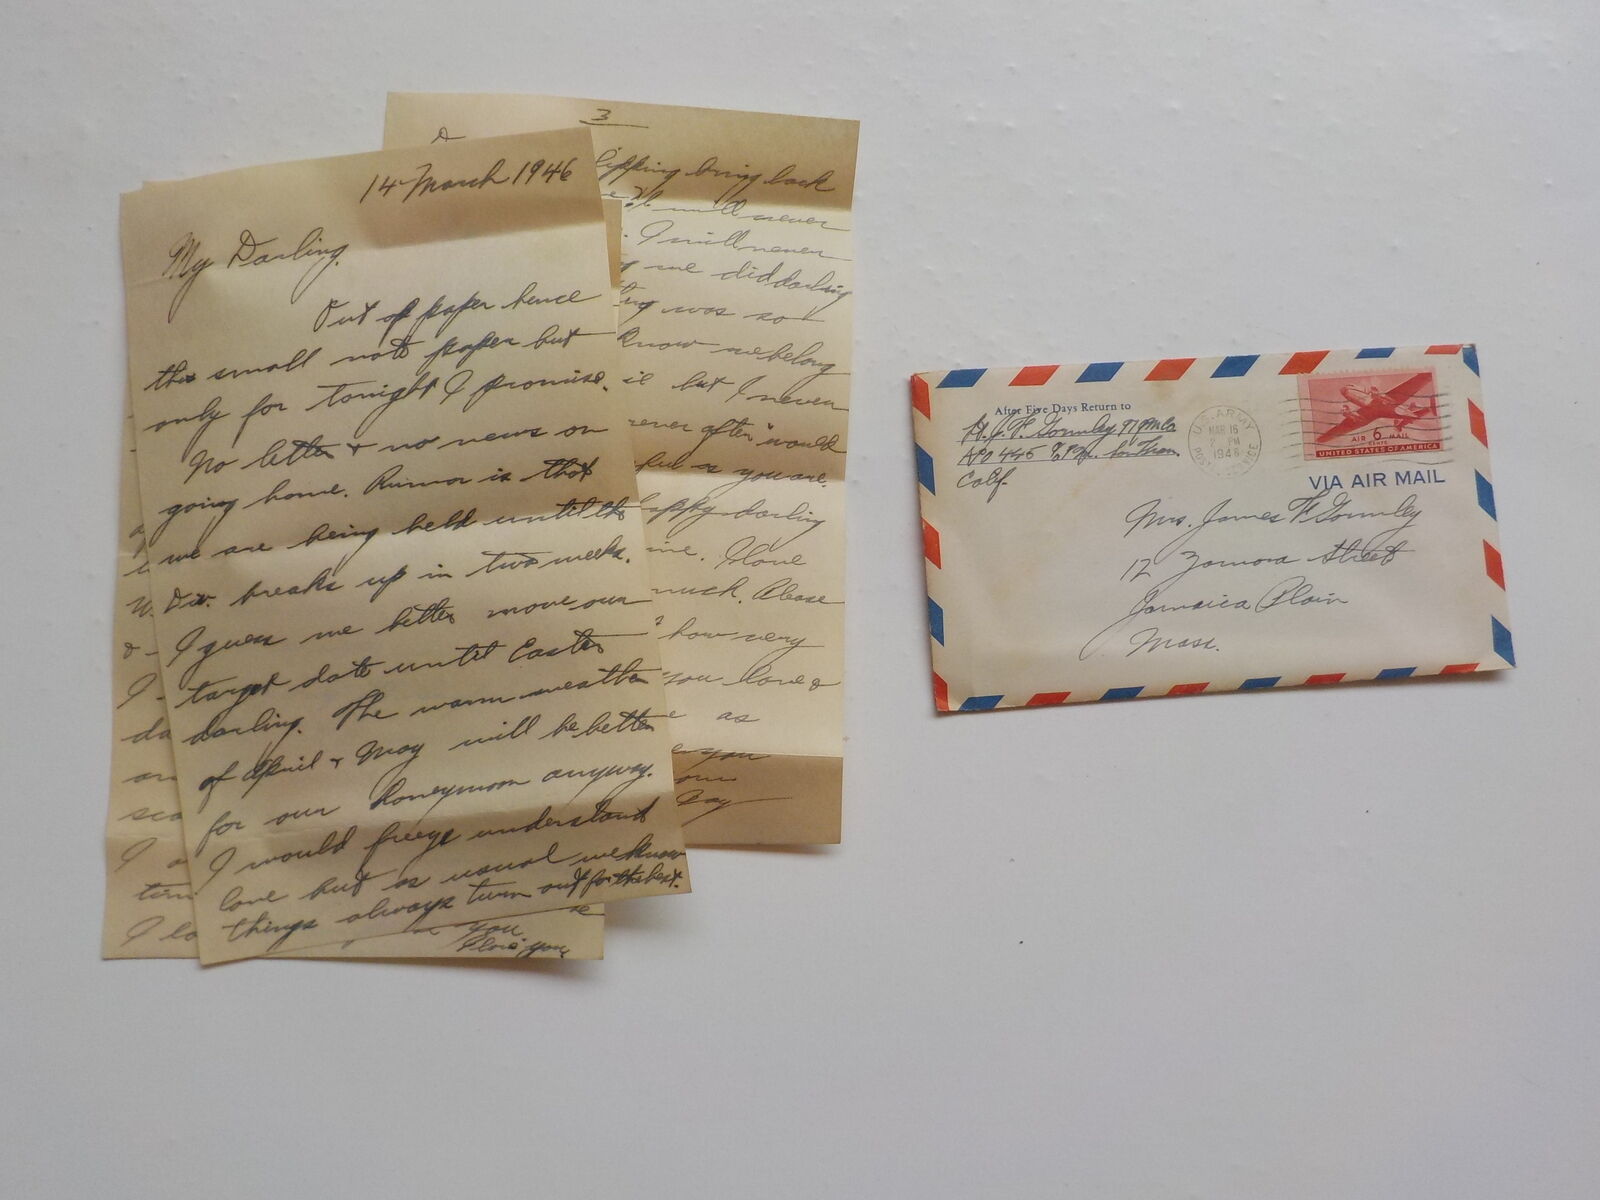 14 March 1946
My Darling.
Out of paper hence
this small note paper but
only for tonight I promise.
No letter & no news on
going home. Rumor is that
we are being held until the
Div. breaks up in two weeks.
I guess we better move our
target date until Easter
darling. The warm weather
of April & May will be better
for our honeymoon anyway.
I would freeze understand
love but as usual we know
things always turn out for the best.
you
I love you
3
clipping bring back
I will never
I will never
we did darling
was so
know we belong
but I never
ever after" would
you are.
happy darling
I love
much. Please
how very
you love &
as
you
Day
da
I a
I lo
After Five Days Return to
Lt. J. F. Gormley 97 QM Co
APO 445 % P.M. San Fran
Calif.
U.S. ARMY
MAR 16
2 PM
1946
AIR 6 MAIL
CENTS
UNITED STATES OF AMERICA
VIA AIR MAIL
Mrs. James F Gormley
12 Zamora Street
Jamaica Plain
Mass.